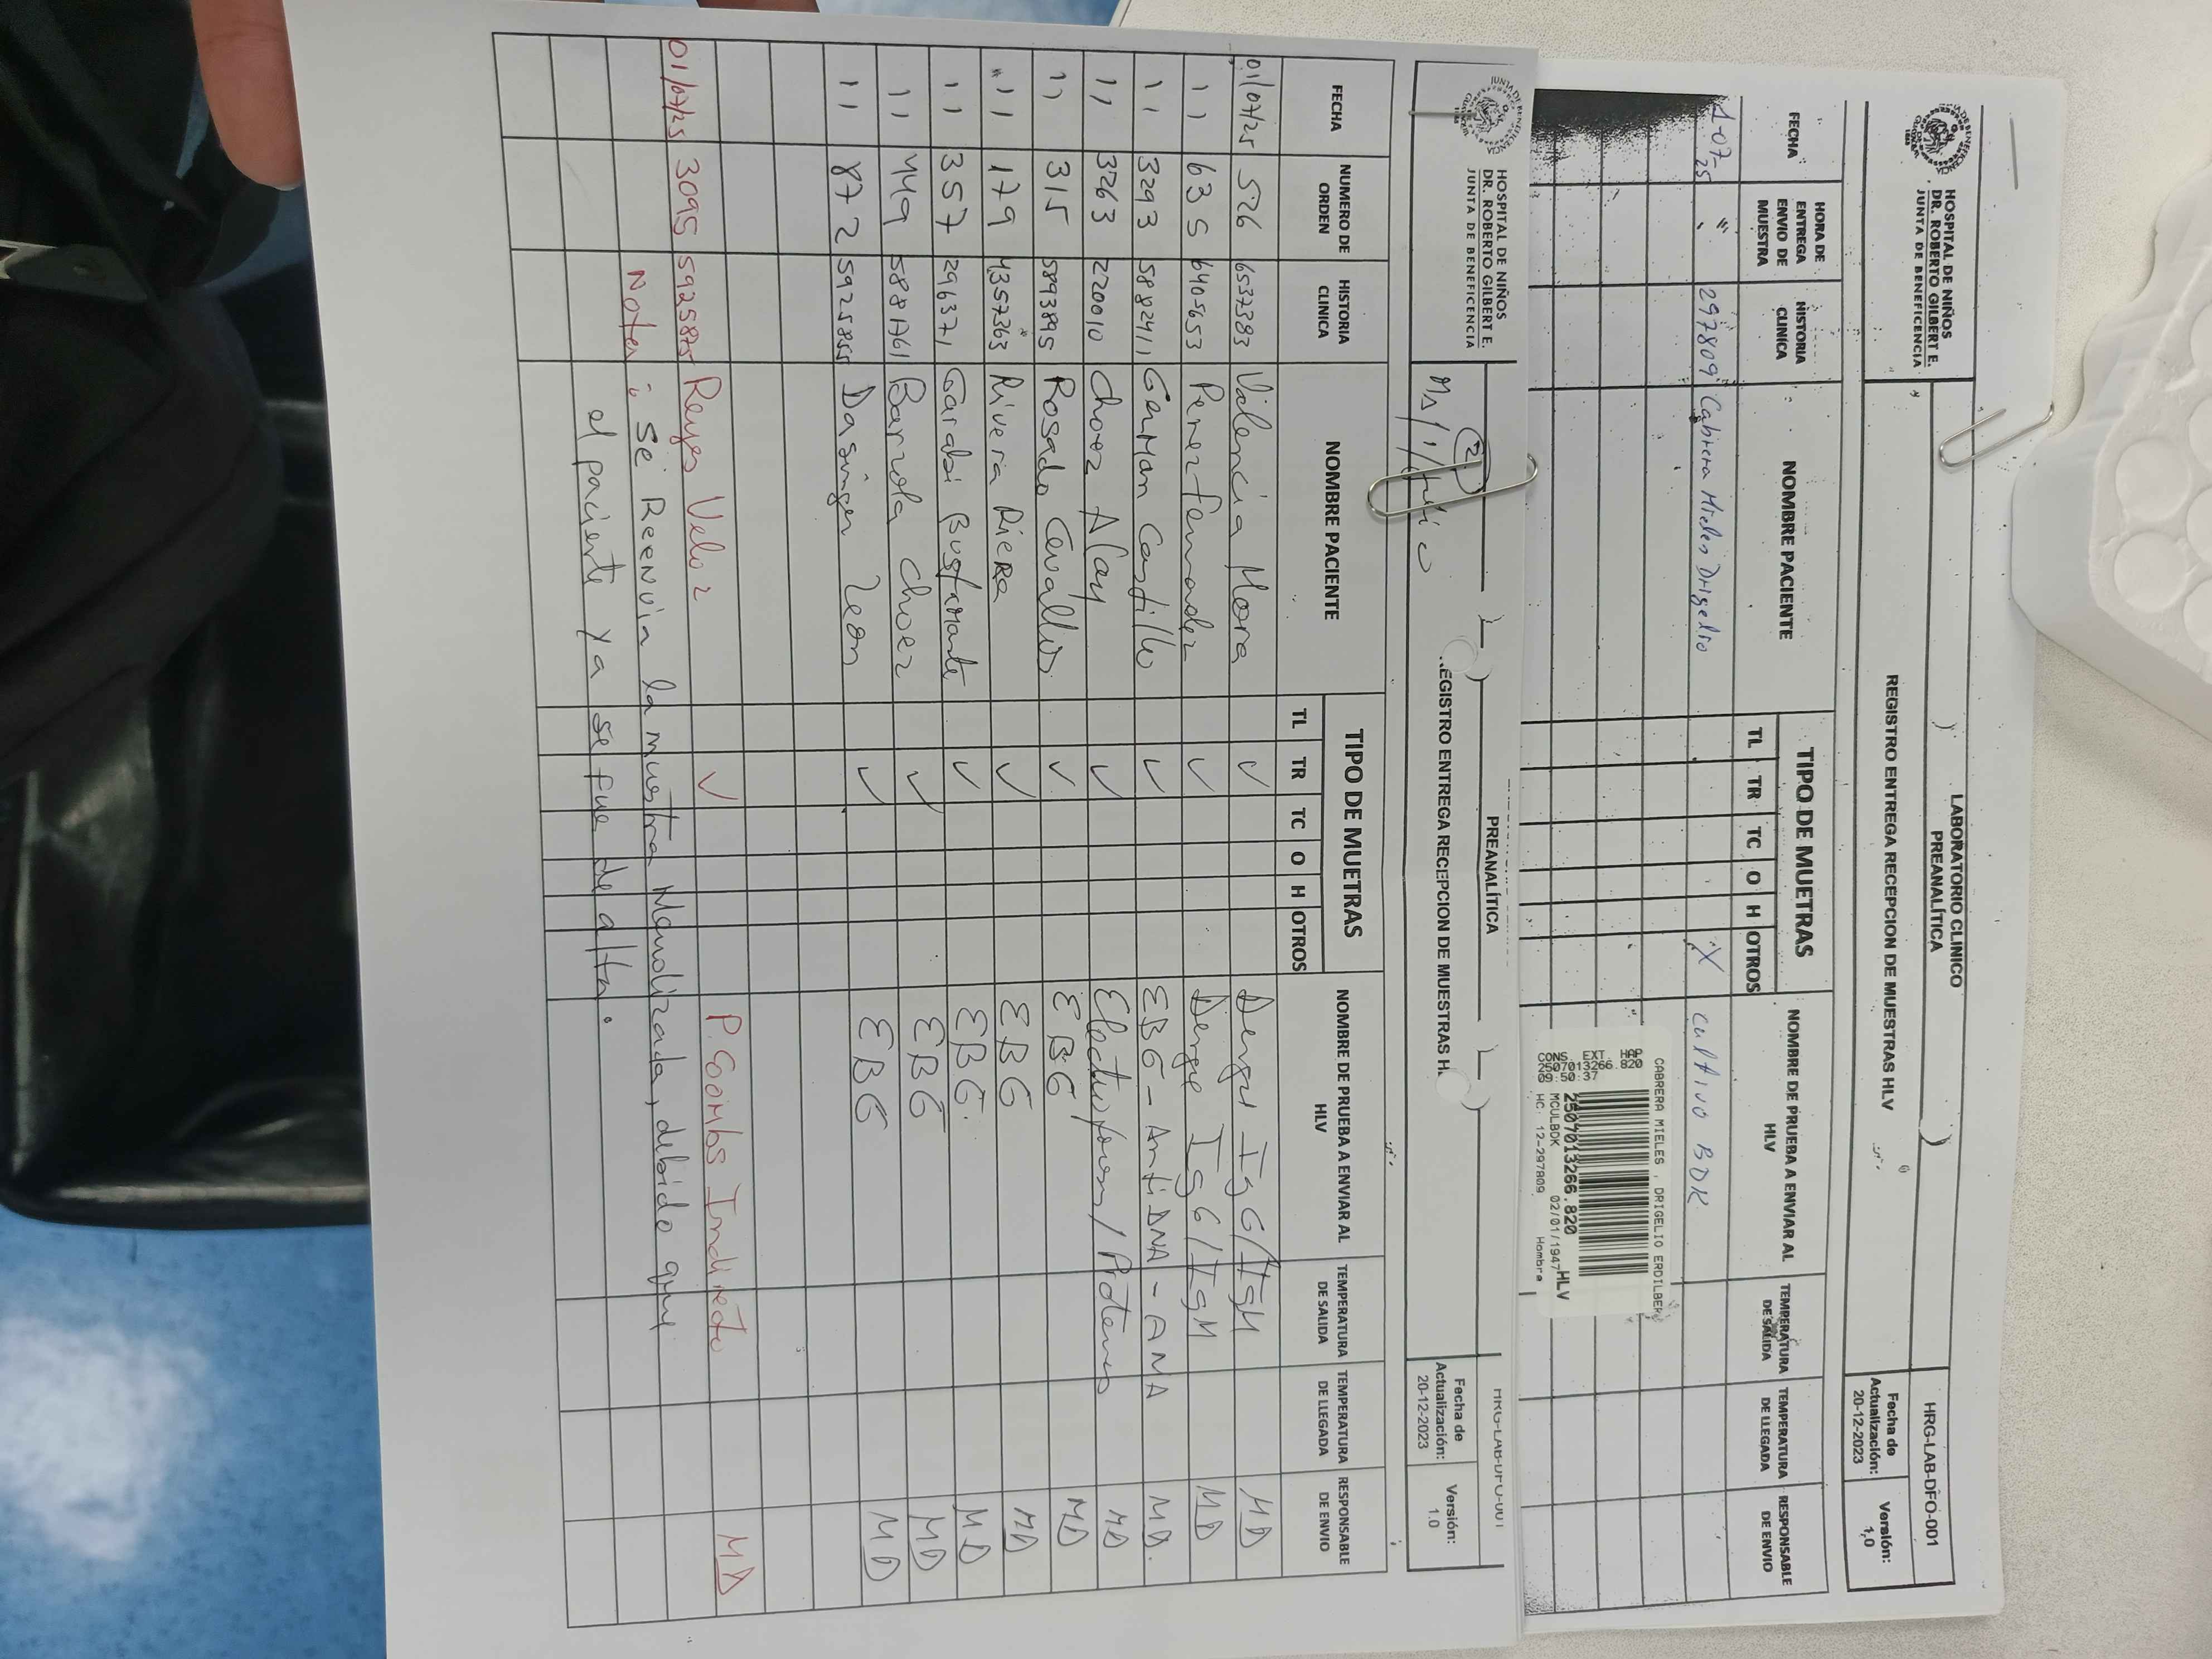 HOSPITAL DE NIÑOS
DR. ROBERTO GILBERT E.
JUNTA DE BENEFICENCIA
LABORATORIO CLINICO
PREANALÍTICA
HRG-LAB-DFO-001
REGISTRO ENTREGA RECEPCION DE MUESTRAS HLV
Fecha de Actualización: 20-12-2023
Versión: 1,0
FECHA HORA DE ENTREGA ENVIO DE MUESTRA HISTORIA CLINICA NOMBRE PACIENTE TIPO DE MUETRAS TL TR TC O H OTROS NOMBRE DE PRUEBA A ENVIAR AL HLV TEMPERATURA DE SALIDA TEMPERATURA DE LLEGADA RESPONSABLE DE ENVIO
1-07-25 " 297809 Cabrera Mieles Drigelio X cultivo BDK
CABRERA MIELES , DRIGELIO ERDILBER
CONS. EXT.
2507013266.820
09:50:37
2507013266.820 HLV
MCULBDK 02/01/1947
HC: 12-297809 Hombre
HOSPITAL DE NIÑOS
DR. ROBERTO GILBERT E.
JUNTA DE BENEFICENCIA
PREANALÍTICA
HRG-LAB-DFO-001
2
REGISTRO ENTREGA RECEPCION DE MUESTRAS H
Fecha de Actualización: 20-12-2023
Versión: 1.0
FECHA NUMERO DE ORDEN HISTORIA CLINICA NOMBRE PACIENTE TIPO DE MUETRAS TL TR TC O H OTROS NOMBRE DE PRUEBA A ENVIAR AL HLV TEMPERATURA DE SALIDA TEMPERATURA DE LLEGADA RESPONSABLE DE ENVIO
01/07/25 526 6537383 Valencia Mora ✓ Dengue IgG/IgM MD
11 635 6405653 Perez Fernandez ✓ Dengue IgG/IgM MD
11 3293 5882411 German Castillo ✓ EBG - Anti DNA - ANA MD.
11 3263 220010 Choez Alay ✓ Electroforesis/Proteinas MD
11 315 5893895 Rosado Cevallos ✓ EBG MD
11 179 4357363 Rivera Riera ✓ EBG MD
11 357 296371 Garabi Bustamante ✓ EBG. MD
11 449 5881761 Barzola Choez ✓ EBG MD
11 872 5925855 Dasinger Leon ✓ EBG MD
01/07/25 3095 5925875 Reyes Veloz ✓ P. Coombs Indirecto MD
Nota: Se Reenvia la muestra Hemolizada, debido que
el paciente ya se fue de alta.